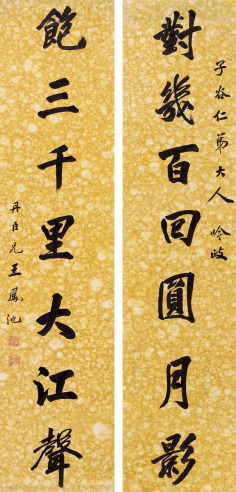 對幾百回圓月影
子
仁弟大人吟
飽三千里大江聲
丹臣兄王鳳池